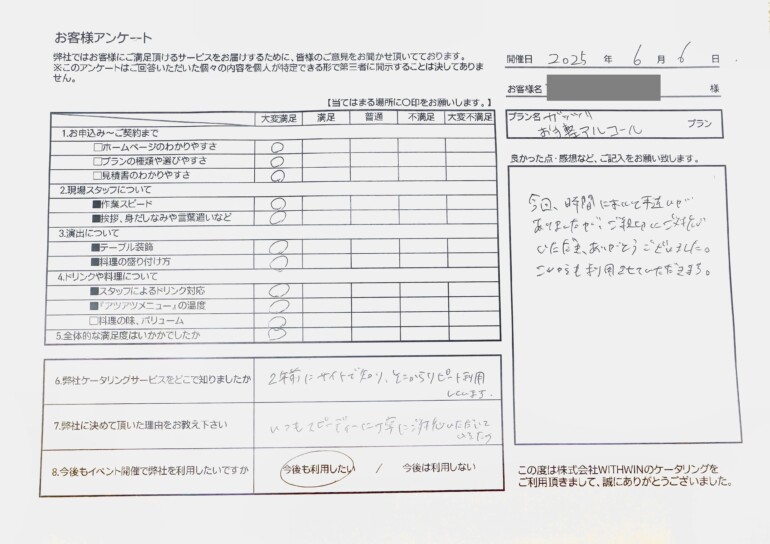 お客様アンケート
弊社ではお客様にご満足頂けるサービスをお届けするために、皆様のご意見をお聞かせ頂いております。
※このアンケートはご回答いただいた個々の内容を個人が特定できる形で第三者に開示することは決してありま
せん。
開催日 2025 年 6 月 6 日
お客様名 様
プラン名 ガッツリ
お手軽アルコール プラン
【当てはまる場所に〇印をお願いします。】
大変満足 満足 普通 不満足 大変不満足
1.お申込み～ご契約まで
□ホームページのわかりやすさ 〇
□プランの種類や選びやすさ 〇
□見積書のわかりやすさ 〇
2.現場スタッフについて
■作業スピード 〇
■挨拶、身だしなみや言葉遣いなど 〇
3.演出について
■テーブル装飾 〇
■料理の盛り付け方 〇
4.ドリンクや料理について
■スタッフによるドリンク対応 〇
■『アツアツメニュー』の温度 〇
□料理の味、ボリューム 〇
5.全体的な満足度はいかがでしたか 〇
6.弊社ケータリングサービスをどこで知りましたか
2年前にサイトで知り、そこからリピート利用
しています。
7.弊社に決めて頂いた理由をお教え下さい
いつもスピーディーに丁寧にご対応いただいて
いるため
8.今後もイベント開催で弊社を利用したいですか
今後も利用したい / 今後は利用しない
良かった点・感想など、ご記入をお願い致します。
今回、時間において手違いが
ありましたが、ご親切にご対応
いただき、ありがとうございました。
これからも利用させていただきます。
この度は株式会社WITHWINのケータリングを
ご利用頂きまして、誠にありがとうございました。